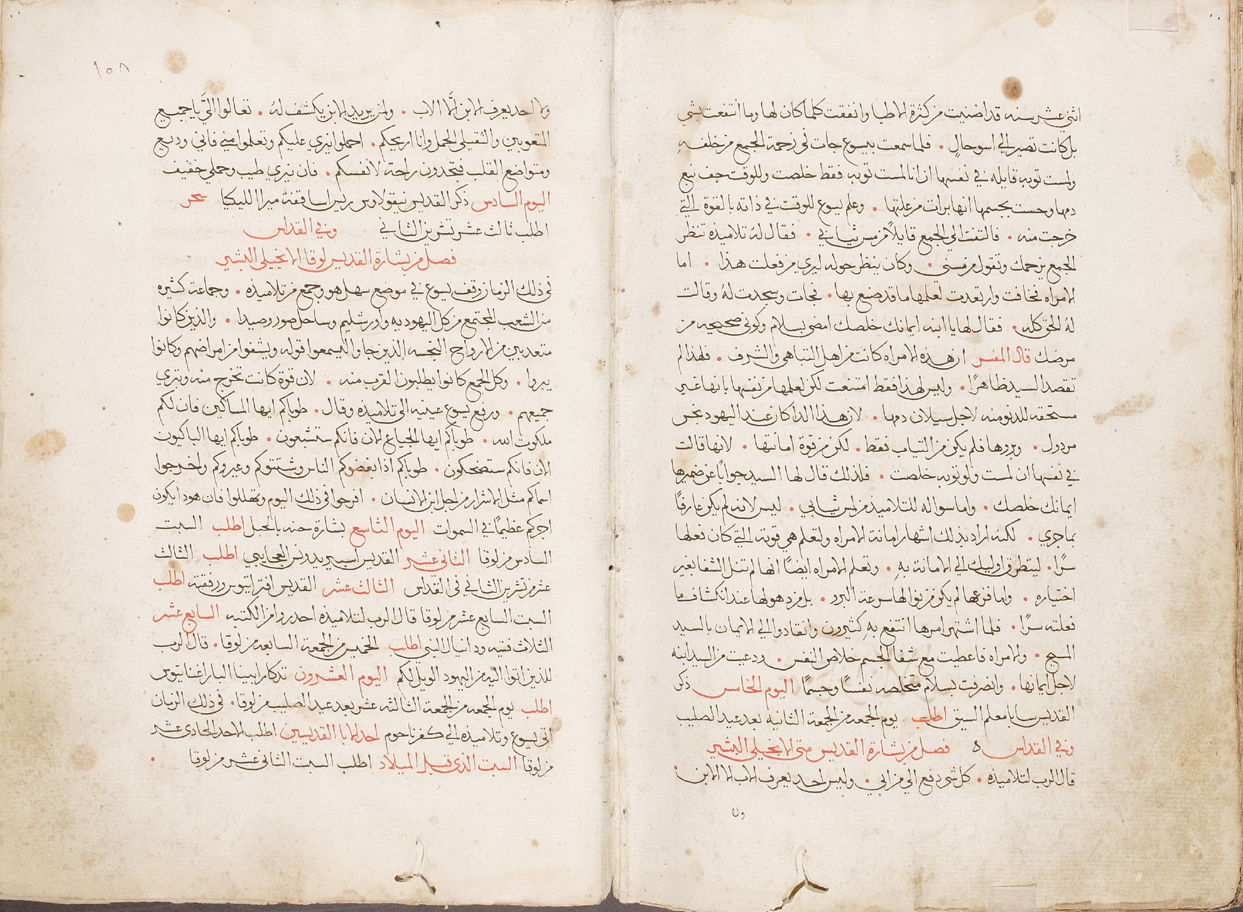 اثني عشر سنه قد اضنيت من كثرة الاطبا وانفقت كلما كان لها وما انتفعت بشي
بل كانت تصير الي اسوحال . فلما سمعت بيسوع جات في زحمة الجمع من خلفه
ولمست ثوبه قايله في نفسها ان انا لمست ثوبه فقط خلصت وللوقت جف نبع
دمها وحست بجسمها انها برات من علتها . وعلم يسوع للوقت في ذاته بالقوة التي
خرجت منه . فالتفت الي الجمع قايلاً من مس ثيابي . فقال له تلاميذه تنظر
الجمع يزحمك وتقول من مسني . وكان ينظر حوله ليري من فعلت هذا . اما
الامراه فخافت وارتعدت لعلمها ما قد صنع بها . فجات وسجدت له وقالت
له الحق كله . فقال لها يا ابنه ايمانك خلصك امضي بسلام وكوني صحيحه من
مرضك قال المفسر ان هذه الامراه كانت من اهل التباهي والشرف . فلهذا لم
تقصد السيد ظاهرًا . وليس لهذا فقط امتنعت لكن لعلمها من نفسها بانها غير
مستحقه للدنو منه لاجل سيلان دمها . لان هذا الدا كان عند اليهود نجس
مردول . وبروها فلم يكن من الثياب فقط . لكن من قوة امانتها . لانها قالت
في نفسها ان لمست ولو ثوبه خلصت . فلذلك قال لها السيد جوابًا عن ضميرها
ايمانك خلصك . واما سواله للتلاميذ من لمس ثيابي . ليس لانه لم يكن عارفًا
بما جري . لكنه اراد بذلك اشهار امانة الامراه ولتعلم هي قوته التي كان فعلها
سرًا . لينظروا وليك الي الامانة به . وتعلم الامراه ايضًا انها لم تنل الشفا بغير
اختياره . واما فزعها لم يكن من نوالها سرعة البرو . بل من دهولها عند انكشاف ما
فعلته سرًا . فلما اشتهر امرها انتفع به كثيرون وانقادوا الي الايمان بالسيد
المسيح . والامراه فاعطيت مع شفا الجسم خلاص النفس . ودعيت من السيد ابنه
لاجل ايمانها . وانصرفت بسلام متخلصه نفسًا وجسمًا اليوم الخامس ذكر
القديس سابا معلم السيق اطلب يوم الجمعه من الجمعة الثانيه بعد عيد الصليب
وفي القداس ه فصل من بشارة القديس متي الانجيلي البشير
قال الرب لتلاميذه . كل شي دفع الي من ابي . وليس احد يعرف الاب الا الابن .
ولا
١٥٨
ولا احد يعرف الابن الّا الاب . ولمن يريد الابن يكشف له . تعالوا اليَّ يا جميع
المتعوبين والثقيلي الحمل وانا اريحكم . احملوا نيري عليكم وتعلموا مني فاني وديع
ومتواضع القلب فتجدون راحة لانفسكم . فان نيري طيب وحملي خفيف
اليوم السادس ذكر القديس نيقولاوس ريس اساقفة ميرا الليكيا سحر
اطلب ثالث عشر تشرين الثاني وفي القداس
فصل من بشارة القديس لوقا الانجيلي البشير
في ذلك الزمان وقف يسوع في موضع سهل هو وجمع من تلاميذه . وجماعة كثيره
من الشعب المجتمع من كل اليهوديه واورشليم وساحل صور وصيدا . والذين كانوا
متعدبين من الارواح النجسه الذين جاوا ليسمعوا قوله ويشفوا من امراضهم وكانوا
يبروا . وكل الجمع كانوا يطلبون القرب منه . لان قوة كانت تخرج منه وتبري
جميعهم . ورفع يسوع عينيه الي تلاميذه وقال . طوباكم ايها المساكين فان لكم
ملكوت الله . طوباكم ايها الجياع الان فانكم ستشبعون . طوباكم ايها الباكيون
الان فانكم ستضحكون . طوباكم اذا بغضوكم الناس وشتتوكم وعيروكم واخرجوا
اسماكم مثل الاشرار من اجل ابن الانسان . افرحوا في ذلك اليوم وتهللوا فان هوذا يكون
اجركم عظيمًا في السموات اليوم التاسع بشارة حنه بالحبل اطلب السبت
السادس من لوقا الثاني عشر القديس اسبيريدنس العجايبي اطلب الثالث
عشر من تشرين الثاني في القداس الثالث عشر القديس افتراتيوس ورفقته اطلب
السبت السابع عشر من لوقا قال الرب لتلاميذه احدروا من الكتبه السابع عشر
الثلاث فتيه ودانيال النبي اطلب الخميس من الجمعة السابعه من لوقا . قال الرب
للذين اتوا اليه من اليهود الويل لكم اليوم العشرون تذكار ابينا البار اغناتيوس
اطلب يوم الجمعه من الجمعة الثالثه عشر بعد عيد الصليب من لوقا . في ذلك الزمان
اتي يسوع وتلاميذه الي كفرناحوم احد الابا القديسين اطلب الاحد الحادي عشر
من لوقا السبت الذي قبل الميلاد اطلب السبت الثاني عشر من لوقا .